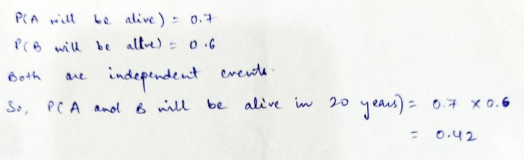 P(A will be alive) = 0.7
P(B will be alive) = 0.6
Both are independent events.
So, P(A and B will be alive in 20 years) = 0.7 x 0.6
= 0.42